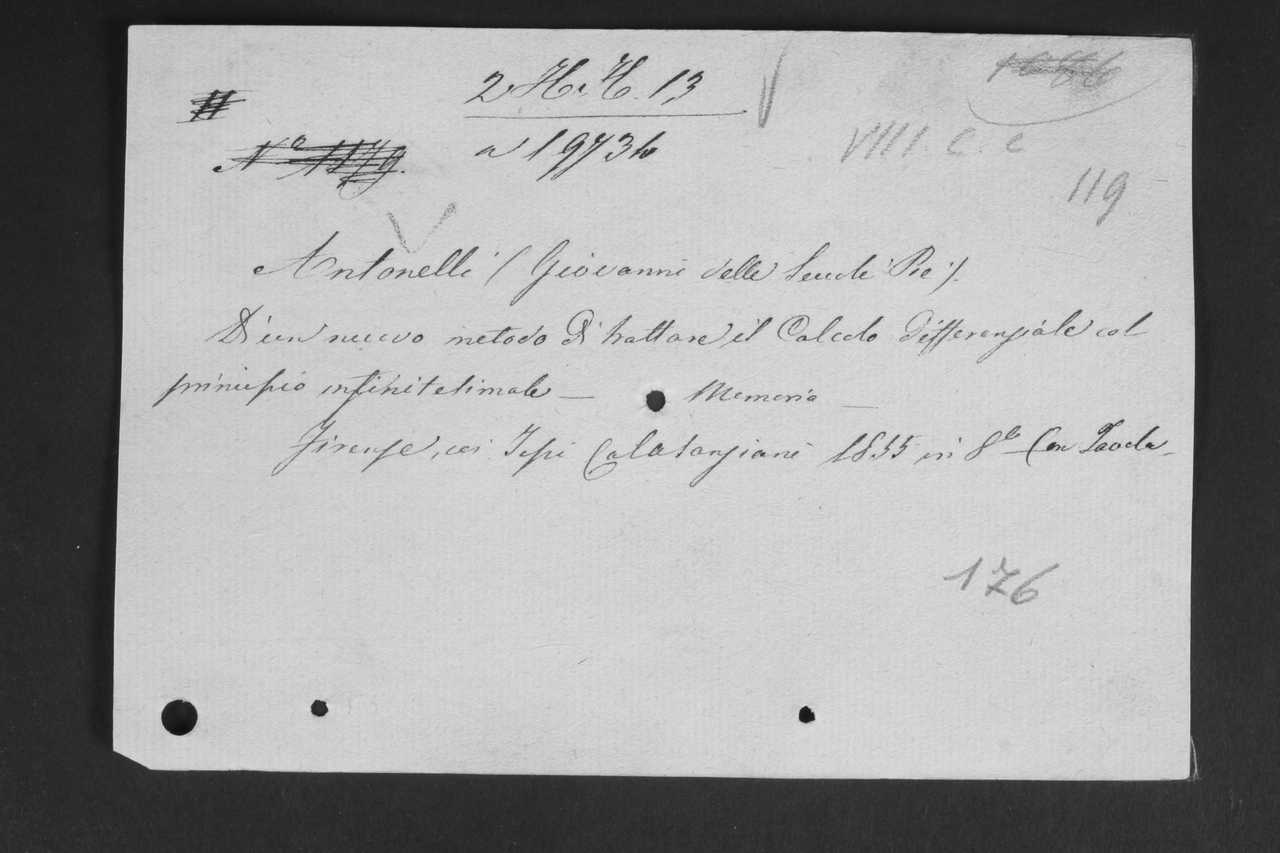 2 H. H. 13
a 1973 b
VIII. C. c
119
Antonelli (Giovanni delle Scuole Pie).
Di un nuovo metodo di trattare il Calcolo differenziale col
principio infinitesimale — Memoria —
Firenze, coi Tipi Calasanziani 1855 in 8° Con Tavola
176